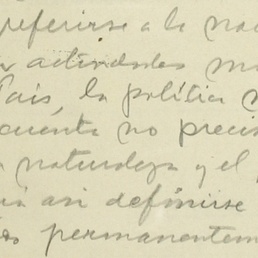 referirse a la na
actividades m
País, la política n
cuenta no precis
naturaleza y el
ia asi definirse
permanentem